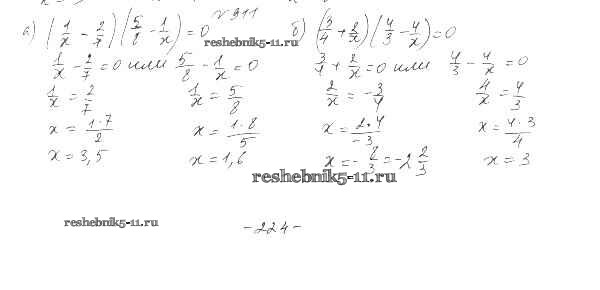 № 911
а) (1/x - 2/7)(5/8 - 1/x) = 0    б) (3/4 + 2/x)(4/3 - 4/x) = 0
reshebnik5-11.ru
1/x - 2/7 = 0 или 5/8 - 1/x = 0    3/4 + 2/x = 0 или 4/3 - 4/x = 0
1/x = 2/7    1/x = 5/8    2/x = - 3/4    4/x = 4/3
x = 1·7/2    x = 1·8/5    x = 2·4/-3    x = 4·3/4
x = 3,5    x = 1,6    x = - 8/3 = -2 2/3    x = 3
reshebnik5-11.ru
reshebnik5-11.ru    - 224 -